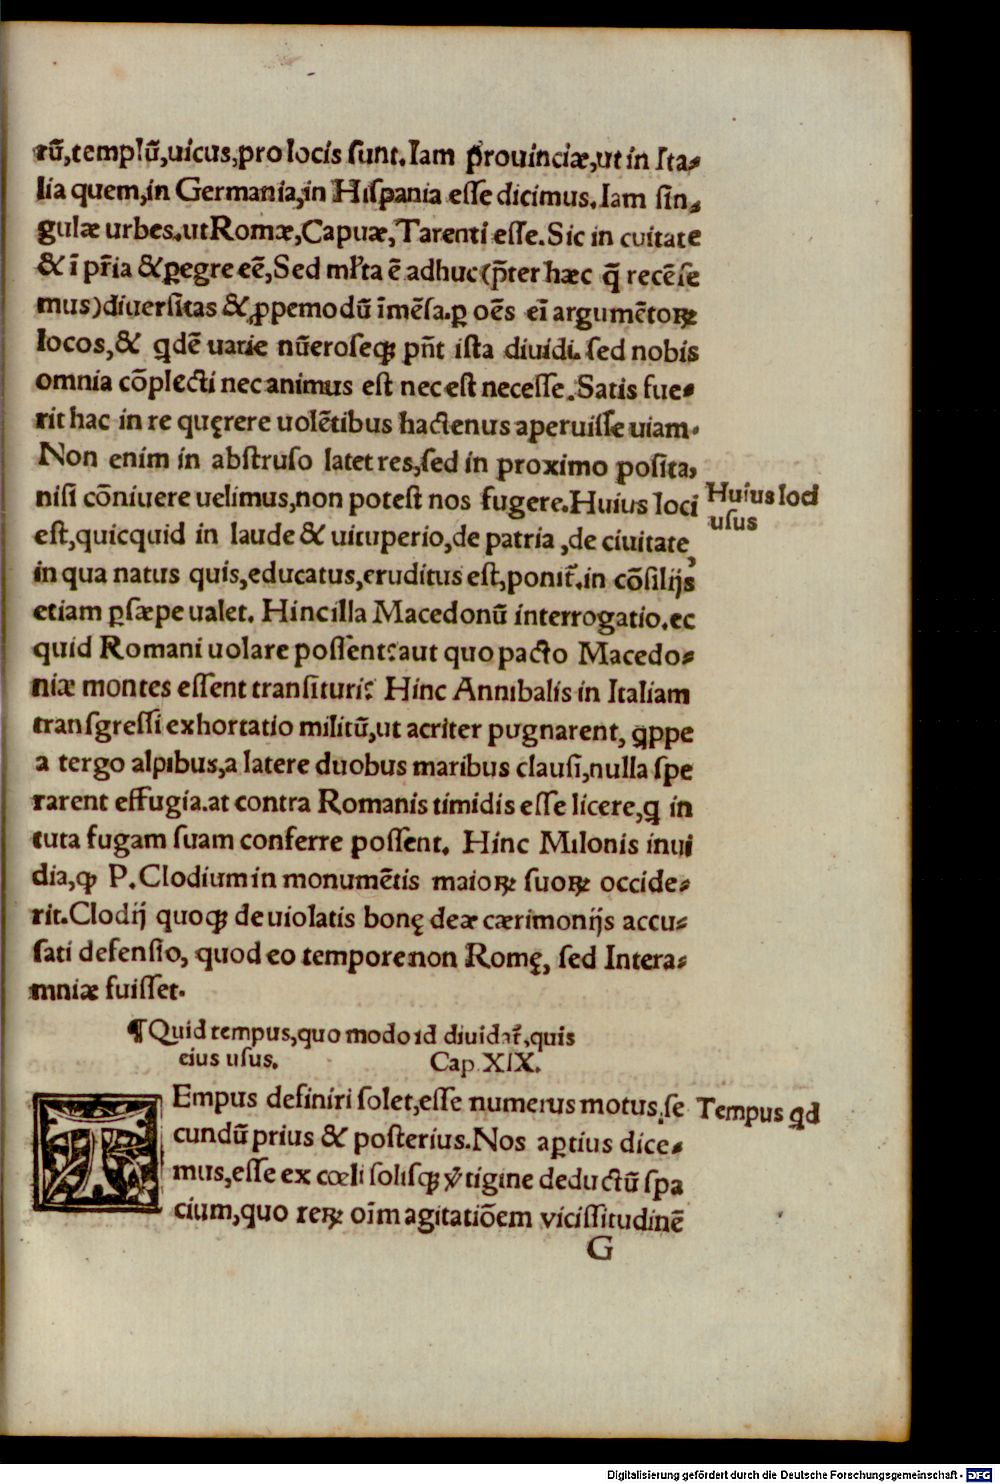 rũ,templũ,uicus,pro locis sunt.Iam ꝓrouinciæ,ut in Ita-
lia quem,in Germania,in Hispania esse dicimus.Iam sin-
gulæ urbes.ut Romæ,Capuæ,Tarenti esse.Sic in cuitate
& ĩ pr̃ia & ꝑegre eẽ,Sed ml̃ta ẽ adhuc (p̃ter hæc q̃ recẽse
mus)diuersitas & ꝓpemodũ ĩmẽsa.ꝑ oẽs eĩ argumẽtoꝝ
locos,& qdẽ uarie nũeroseqꝫ pñt ista diuidi.sed nobis
omnia cõplecti nec animus est nec est necesse.Satis fue-
rit hac in re quęrere uolẽtibus hactenus aperuisse uiam.
Non enim in abstruso latet res,sed in proximo posita,
nisi cõniuere uelimus,non potest nos fugere.Huius loci
Huius loci
usus
est,quicquid in laude & uituperio,de patria ,de ciuitate,
in qua natus quis,educatus,eruditus est,ponit̃.in cõsilijs
etiam ꝑsæpe ualet. Hinc illa Macedonũ interrogatio.ec
quid Romani uolare possent?aut quo pacto Macedo-
niæ montes essent transituri? Hinc Annibalis in Italiam
transgressi exhortatio militũ,ut acriter pugnarent, ꝗppe
a tergo alpibus,a latere duobus maribus clausi,nulla spe
rarent effugia.at contra Romanis timidis esse licere,ꝗ in
tuta fugam suam conferre possent. Hinc Milonis inui
dia,ꝙ P.Clodium in monumẽtis maioꝝ suoꝝ occide-
rit.Clodij quoqꝫ de uiolatis bonę deæ cærimonijs accu-
sati defensio, quod eo tempore non Romę, sed Intera-
mniæ fuisset.
¶Quid tempus,quo modo id diuidat̃,quis
eius usus. Cap.XIX.
TEmpus definiri solet,esse numerus motus,se
Tempus ꝗd
cundũ prius & posterius.Nos aꝑtius dice-
mus,esse ex cœli solisqꝫ ṽtigine deductũ spa
cium,quo reꝝ oĩm agitatiõem vicissitudinẽ
G
Digitalisierung gefördert durch die Deutsche Forschungsgemeinschaft - DFG